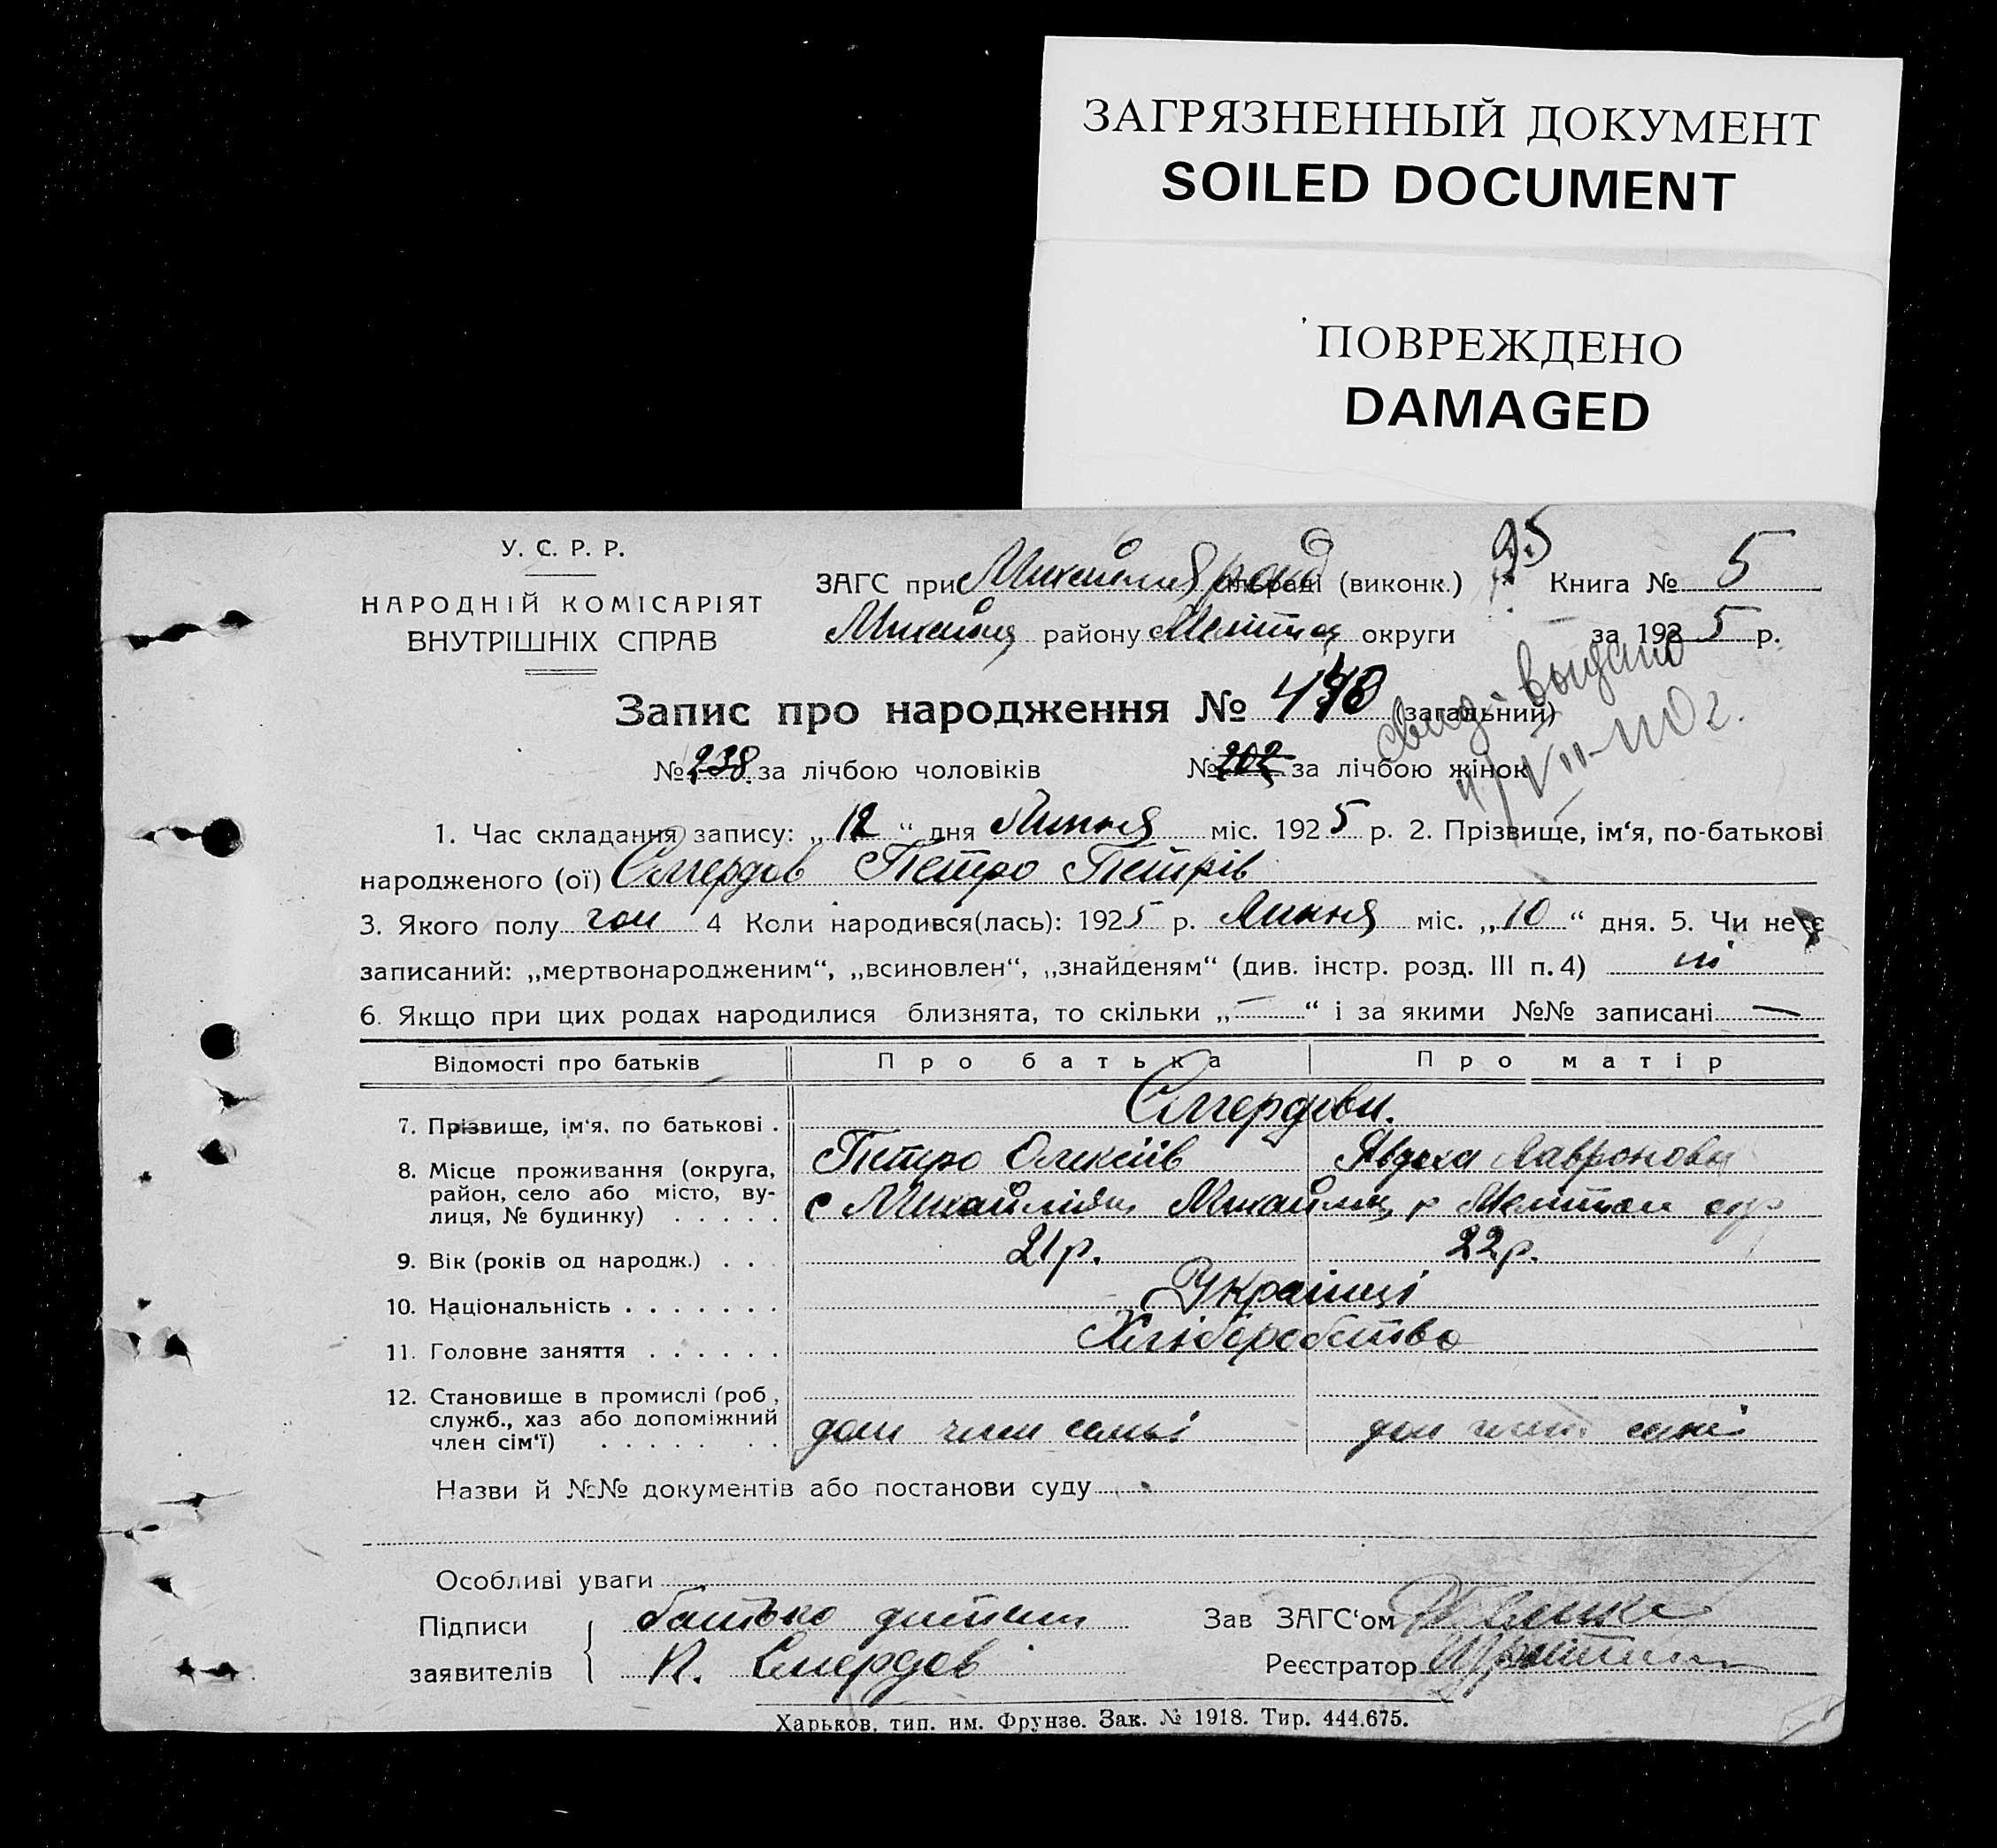 ЗАГРЯЗНЕННЫЙ ДОКУМЕНТ
SOILED DOCUMENT
ПОВРЕЖДЕНО
DAMAGED
У. С. Р. Р.
НАРОДНІЙ КОМІСАРІЯТ
ВНУТРІШНІХ СПРАВ
ЗАГС при раді (виконк.) Книга № 5
району округи за 1925 р.
Запис про народження № (загальний)
свид-во выдано
№ 238 за лічбою чоловіків № 202 за лічбою жінок
1. Час складання запису: „12“ дня Липня міс. 1925 р. 2. Прізвище, ім‘я, по-батькові
народженого (ої) Смердов Петро Петрів
3. Якого полу чол 4 Коли народився(лась): 1925 р. Липня міс. „10“ дня. 5. Чи не є
записаний: „мертвонародженим“, „всиновлен“, „знайденям“ (див. інстр. розд. III п. 4) ні
6. Якщо при цих родах народилися близнята, то скільки „—“ і за якими №№ записані —
Відомості про батьків Про батька Про матір
7. Прізвище, ім‘я, по батькові . Смердови.
Петро Олексіїв Явдоха Лавронова
8. Місце проживання (округа, район, село або місто, ву-лиця, № будинку) . . . . . с
9. Вік (років од народж.) . . . 21р. 22р.
10. Національність . . . . . . . Українці
11. Головне заняття . . . . . . Хліборобство
12. Становище в промислі (роб, служб., хаз або допоміжний член сім‘ї) . . . . . . . доп член семьї доп член семьї
Назви й №№ документів або постанови суду
Особливі уваги
Підписи батько дитини Зав ЗАГС‘ом
заявителів П. Смердов Реєстратор
Харьков, тип. им. Фрунзе. Зак. № 1918. Тир. 444.675.